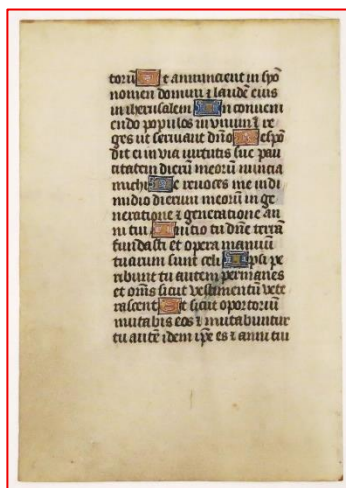 torū Ut annuncient in syō
nomen domini ⁊ laudē eius
in iherusalem In conueni
endo populos in vnum ⁊ re
ges ut seruiant dn̄o Respō
dit ei in via uirtutis sue pau
citatem dierū meorū nuncia
michi Ne reuoces me in di
midio dierum meorū in ge
neratione ⁊ generatione an
ni tui Initio tu dn̄e terrā
fundasti et opera manuū
tuarum sunt celi Ipsi pe
ribunt tu autem permanes
et om̄s sicut vestimentū vete
rascent Et sicut oportoriū
mutabis eos ⁊ mutabuntur
tu autē idem ip̄e es ⁊ anni tui